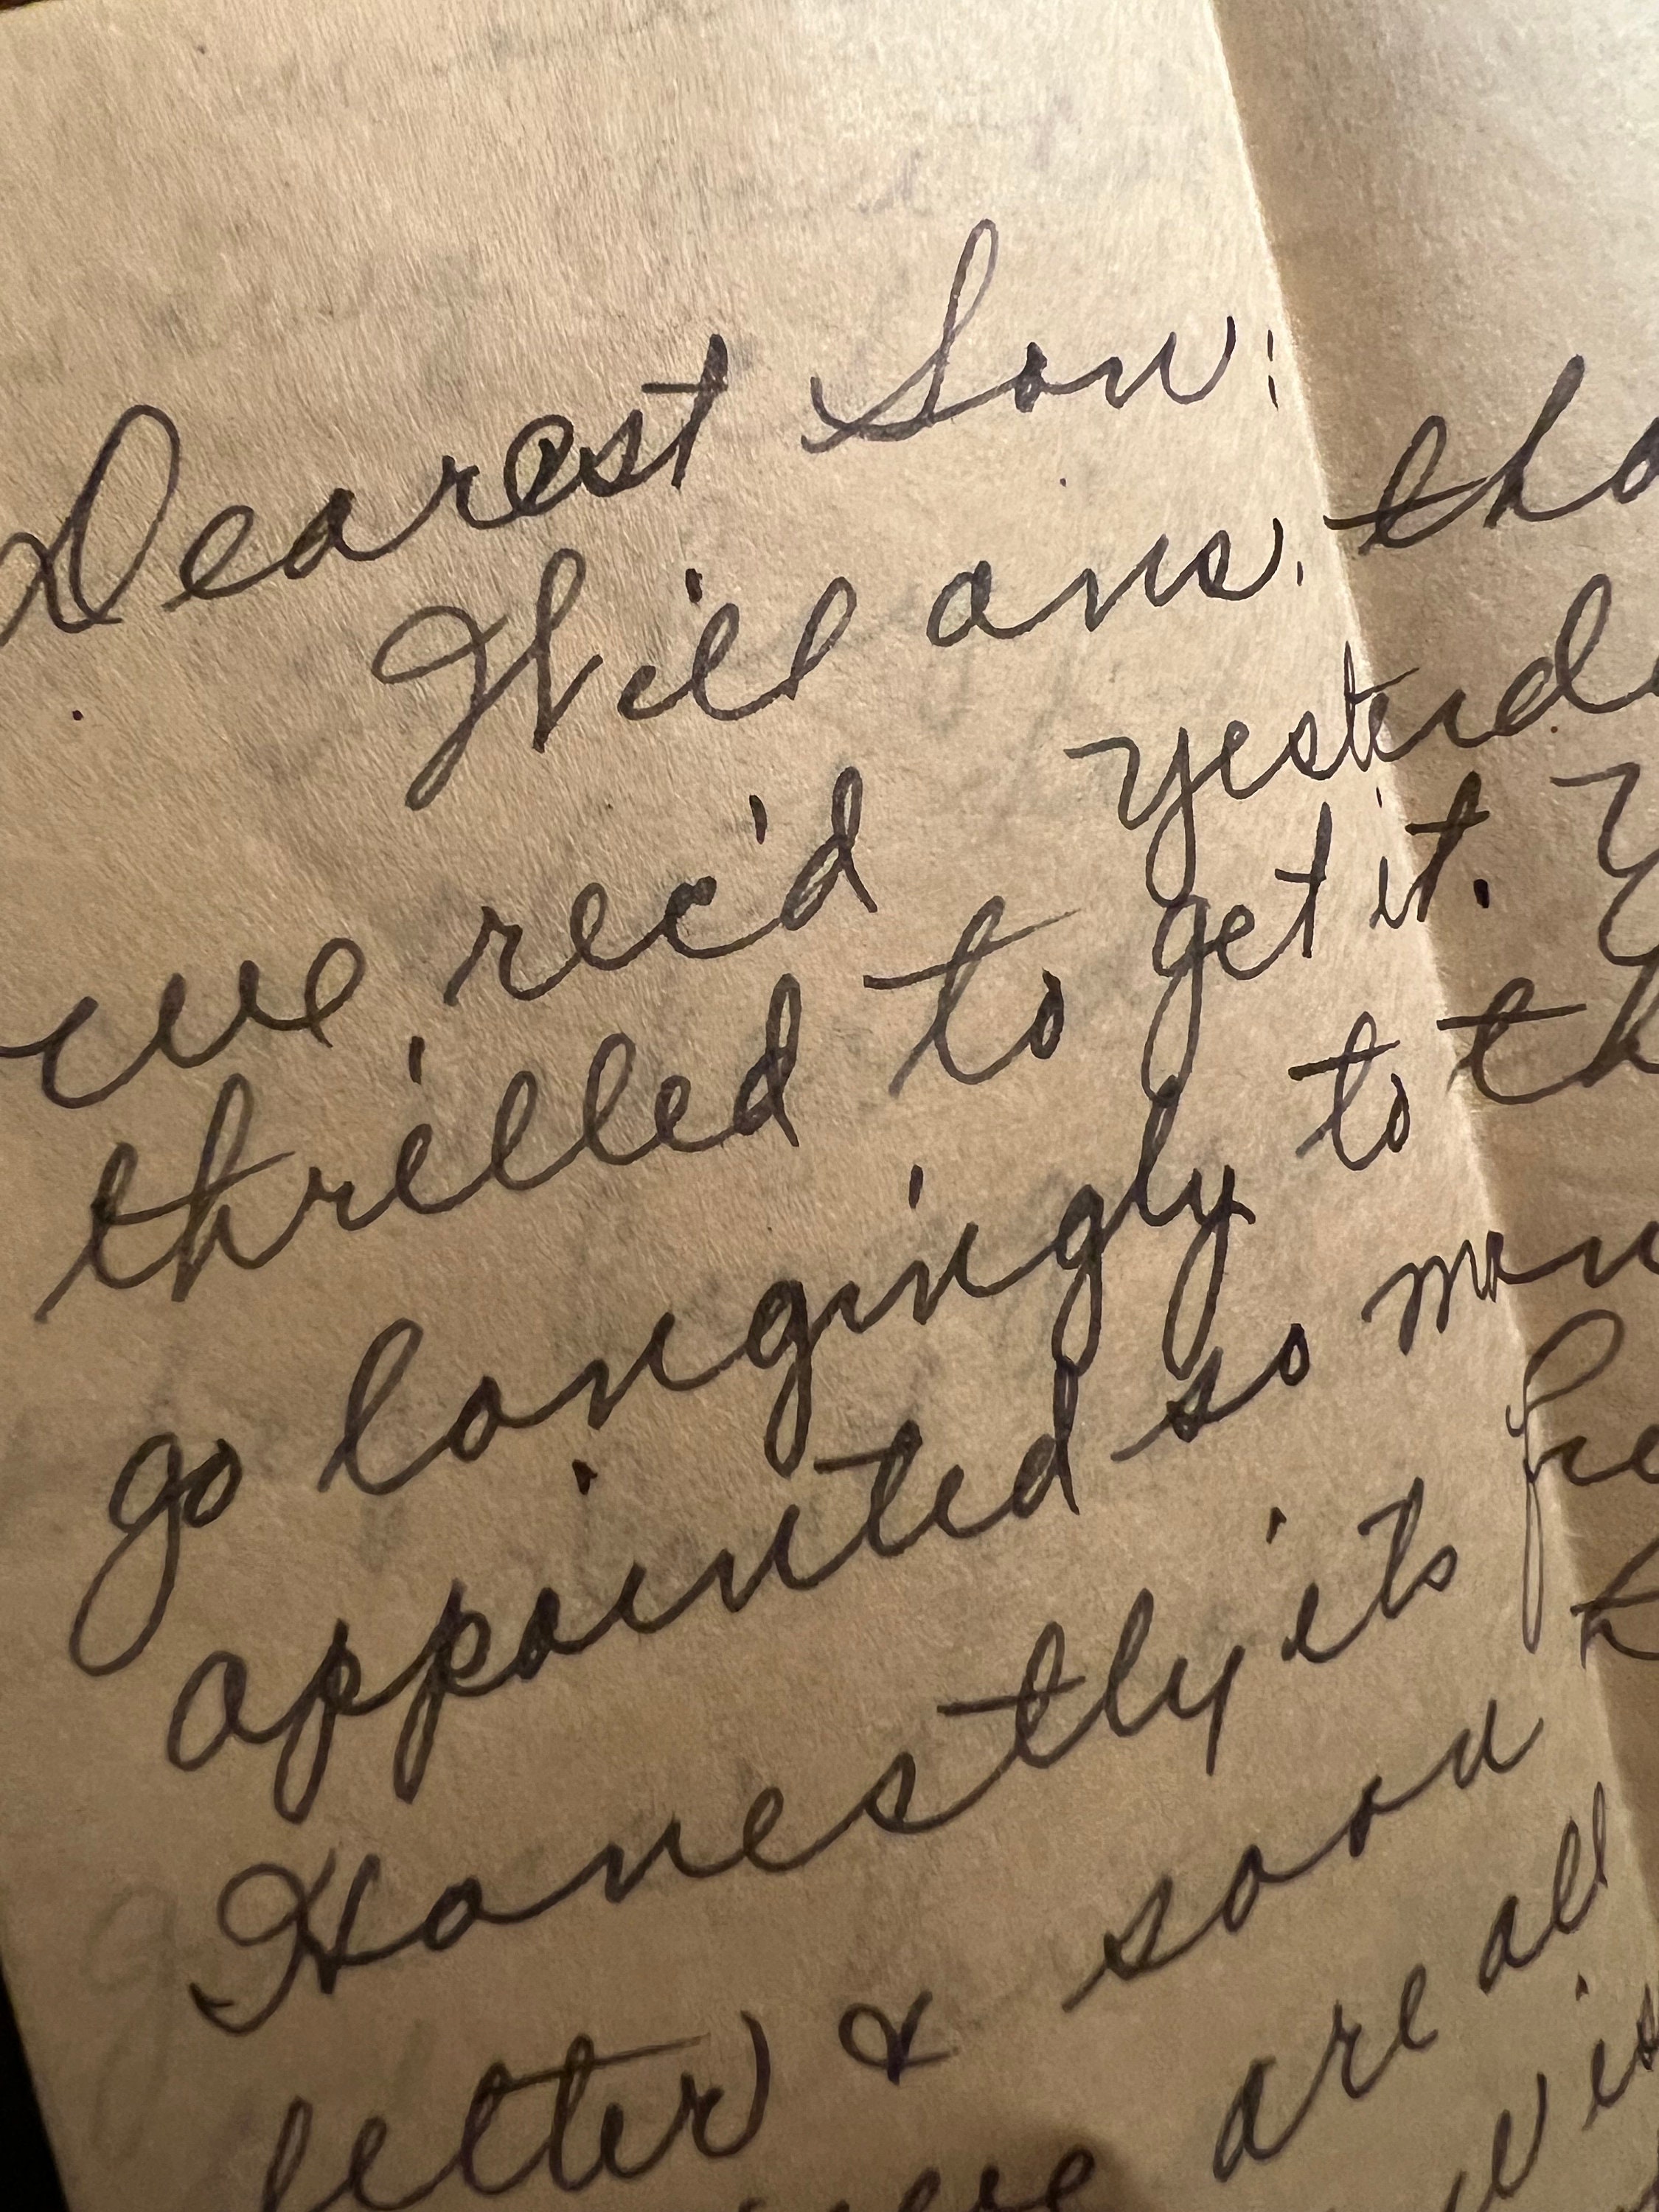 Dearest Son:
Will ans. tha
we rec'd yesterda
thrilled to get it. Y
go longingly to th
appointed so man
Honestly its
letter & soon
are all